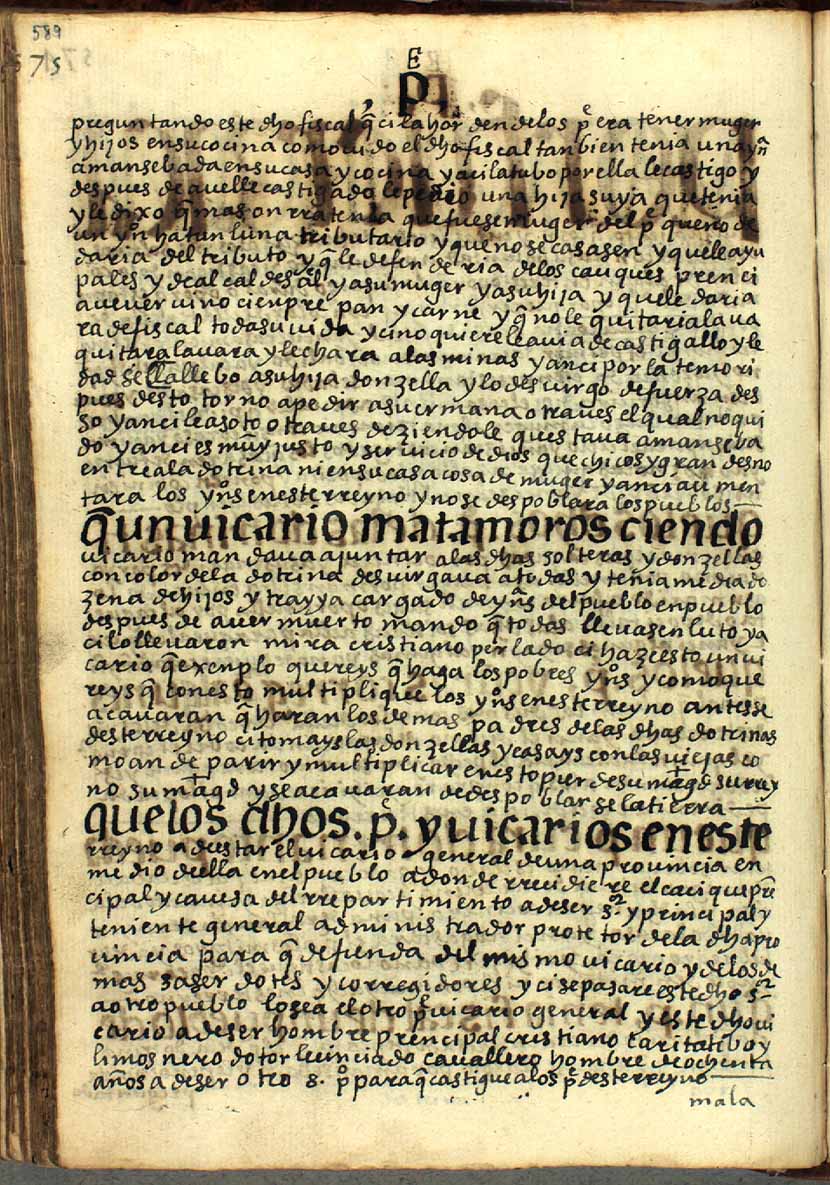 589
575
E
p
preguntando este dho fiscal q̃ ci la horden delos pe era tener muger
y hijos en su cocina como uido el dho fiscal tanbien tenia una yna
amansebada en su casa y cocina y aci la tubo por ella le castigo y
despues de avelle castigado le pedio una hija suya que tenia
y le dixo q̃ mas onrra tenia que fuese muger del pe que no de
un yno hatun luna tributario y que no se casasen y que le ayu
daria del tributo y q̃ le defenderia delos caciques prenci
pales y de alcaldes y a su muger y a su hija y que le daria
a uever uino cienpre pan y carne y q̃ no le quitaria la ua
ra de fiscal toda su uida y ci no quiere le auia de castigallo y le
quitara la uara y lechara a las minas y anci por la temori
dad se lla llebo a su hija donzella y lo desuirgo de fuerza des
pues desto torno a pedir a su ermana otra ues el qual no qui
so y anci le asoto otra ues deziendole questaua amanseba
do y anci es muy justo y seruicio de dios que chicos y grandes no
entre a la dotrina ni en su casa cosa de muger y anci aumen
tara los ynos en este rreyno y no se despoblara los pueblos
q̃ un uicario matamoros ciendo
uicario mandaua ajuntar a las dhas solteras y donzellas
con color dela dotrina desuirgaua a todas y tenia media do
zena de hijos y trayya cargado de yns del pueblo en pueblo
despues de auer muerto mando q̃ todas llevasen luto y a
ci lo llevaron mira cristiano perlado ci haze esto un ui
cario q̃ exenplo quereys q̃ haga los pobres yns y como que
reys q̃ con esto multiplique los yns en este rreyno antes se
acauaran q̃ haran los demas padres delas dhas dotrinas
deste rreyno ci tomays las donzellas y casays con las uiejas co
mo an de parir y multiplicar en esto pierde su magd su rrey
no su magd y se acauaran de despoblarse la tierra
que los dhos. p. y uicarios en este
rreyno a de estar el uicario general de una prouincia en
medio della en el pueblo adonde rrecidiere el cacique pren
cipal y cauesa del rrepartimiento a de ser sor y principal y
teniente general administrador protetor dela dha pro
uincia para q̃ defienda del mismo uicario y de los de
mas saserdotes y corregidores y ci se pasare este dho sor
a otro pueblo lo sea el otro p uicario general y este dho ui
cario a de ser hombre prencipal cristiano caritatibo y
limosnero dotor lecinciado cauallero hombre de ochenta
años a de ser otro s. po para q̃ castigue a los pe deste rreyno
mala